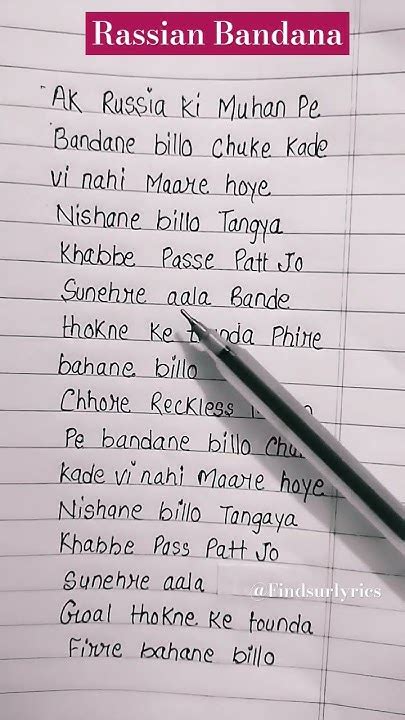 Rassian Bandana
AK Russia Ki Muhan Pe
Bandane billo Chuke Kade
vi nahi Maare hoye
Nishane billo Tangya
Khabbe Passe Patt Jo
Sunehre aala Bande
thokne Ke Phire
bahane billo
Chhore Reckless
Pe bandane billo
Kade vi nahi Maare hoye
Nishane billo Tangaya
Khabbe Pass Patt Jo
Sunehre aala
@Findsurlyrics
Goal thokne Ke tounda
Firre bahane billo